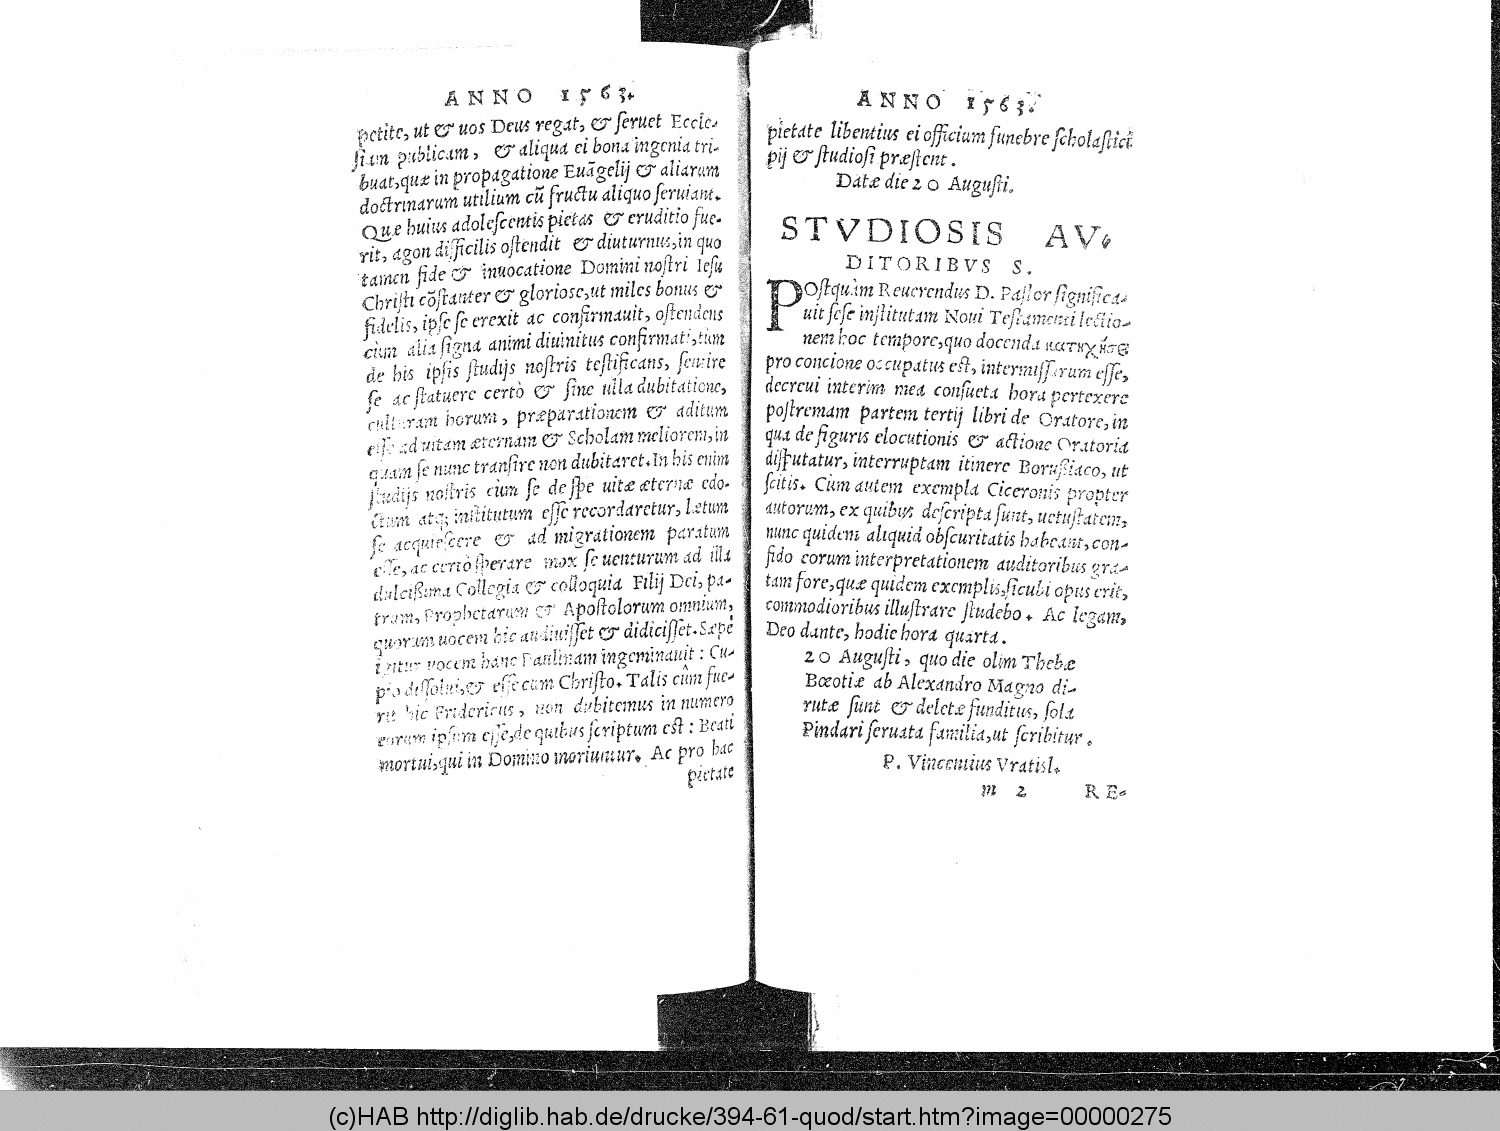 ANNO 1563.
petite, ut & uos Deus regat, & ſeruet Eccle-
ſiam publicam, & aliqua ei bona ingenia tri-
buat, quæ in propagatione Euãgelij & aliarum
doctrinarum utilium cũ fructu aliquo ſeruiant.
Quæ huius adoleſcentis pietas & eruditio fue-
rit, agon difficilis oſtendit & diuturnus, in quo
tamen fide & inuocatione Domini noſtri Ieſu
Chriſti cõſtanter & glorioſe, ut miles bonus &
fidelis, ipſe ſe erexit ac confirmauit, oſtendens
cùm alia ſigna animi diuinitus confirmati, tùm
de his ipſis ſtudijs noſtris teſtificans, ſentire
ſe ac ſtatuere certò & ſine ulla dubitatione,
culturam horum, præparationem & aditum
eſſe ad uitam æternam & Scholam meliorem, in
quam ſe nunc tranſire non dubitaret. In his enim
ſtudijs noſtris cùm ſe de ſpe uitæ æternæ edo-
ctum atq; inſtitutum eſſe recordaretur, lætum
ſe acquieſcere & ad migrationem paratum
eſſe, ac certò ſperare mox ſe uenturum ad illa
dulcißima Collegia & colloquia Filij Dei, pa-
trum, Prophetarum & Apoſtolorum omnium,
quorum uocem hic audiuiſſet & didiciſſet. Sæpè
igitur uocem hanc Paulinam ingeminauit: Cu-
pio diſſolui, & eſſe cum Chriſto. Talis cùm fue-
rit hic Fridericus, non dubitemus in numero
eorum ipſum eſſe, de quibus ſcriptum eſt: Beati
mortui, qui in Domino moriuntur. Ac pro hac
pietate
ANNO 1563.
pietate libentius ei officium funebre ſcholaſtici
pij & ſtudioſi præſtent.
Datæ die 20 Auguſti.
STVDIOSIS AV-
DITORIBVS S.
POſtquàm Reuerendus D. Paſtor ſignifica-
uit ſeſe inſtitutam Noui Teſtamenti lectio-
nem hoc tempore, quo docenda κατηχήσει
pro concione occupatus eſt, intermiſſurum eſſe,
decreui interim mea conſueta hora pertexere
poſtremam partem tertij libri de Oratore, in
qua de figuris elocutionis & actione Oratoria
diſputatur, interruptam itinere Borußiaco, ut
ſcitis. Cùm autem exempla Ciceronis propter
autorum, ex quibus deſcripta ſunt, uetuſtatem,
nunc quidem aliquid obſcuritatis habeant, con-
fido eorum interpretationem auditoribus gra-
tam fore, quæ quidem exemplis, ſicubi opus erit,
commodioribus illuſtrare ſtudebo. Ac legam,
Deo dante, hodie hora quarta.
20 Auguſti, quo die olim Thebæ
Bœotiæ ab Alexandro Magno di-
rutæ ſunt & deletæ funditus, ſola
Pindari ſeruata familia, ut ſcribitur.
P. Vincentius Vratisl.
m 2 RE-
(c)HAB http://diglib.hab.de/drucke/394-61-quod/start.htm?image=00000275